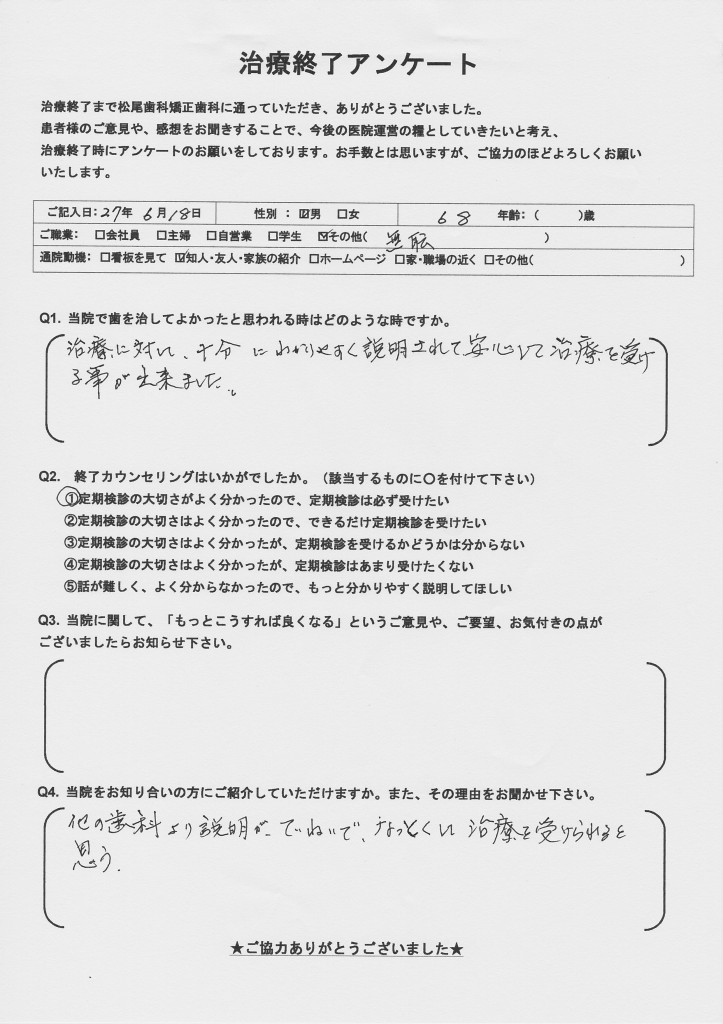 治療終了アンケート
治療終了まで松尾歯科矯正歯科に通っていただき、ありがとうございました。
患者様のご意見や、感想をお聞きすることで、今後の医院運営の糧としていきたいと考え、
治療終了時にアンケートのお願いをしております。お手数とは思いますが、ご協力のほどよろしくお願い
いたします。
ご記入日:27年 6月18日 性別 : ☑男 □女 68 年齢:( )歳
ご職業: □会社員 □主婦 □自営業 □学生 ☑その他( 無転 )
通院動機: □看板を見て ☑知人・友人・家族の紹介 □ホームページ □家・職場の近く □その他( )
Q1. 当院で歯を治してよかったと思われる時はどのような時ですか。
治療に対し、十分にわかりやすく説明されて安心して治療を受け
る事が出来ました。
Q2. 終了カウンセリングはいかがでしたか。(該当するものに〇を付けて下さい)
①定期検診の大切さがよく分かったので、定期検診は必ず受けたい
②定期検診の大切さはよく分かったので、できるだけ定期検診を受けたい
③定期検診の大切さはよく分かったが、定期検診を受けるかどうかは分からない
④定期検診の大切さはよく分かったが、定期検診はあまり受けたくない
⑤話が難しく、よく分からなかったので、もっと分かりやすく説明してほしい
Q3. 当院に関して、「もっとこうすれば良くなる」というご意見や、ご要望、お気付きの点が
ございましたらお知らせ下さい。
Q4. 当院をお知り合いの方にご紹介していただけますか。また、その理由をお聞かせ下さい。
他の歯科より説明が、ていねいで、なっとくし治療を受けられると
思う.
★ご協力ありがとうございました★